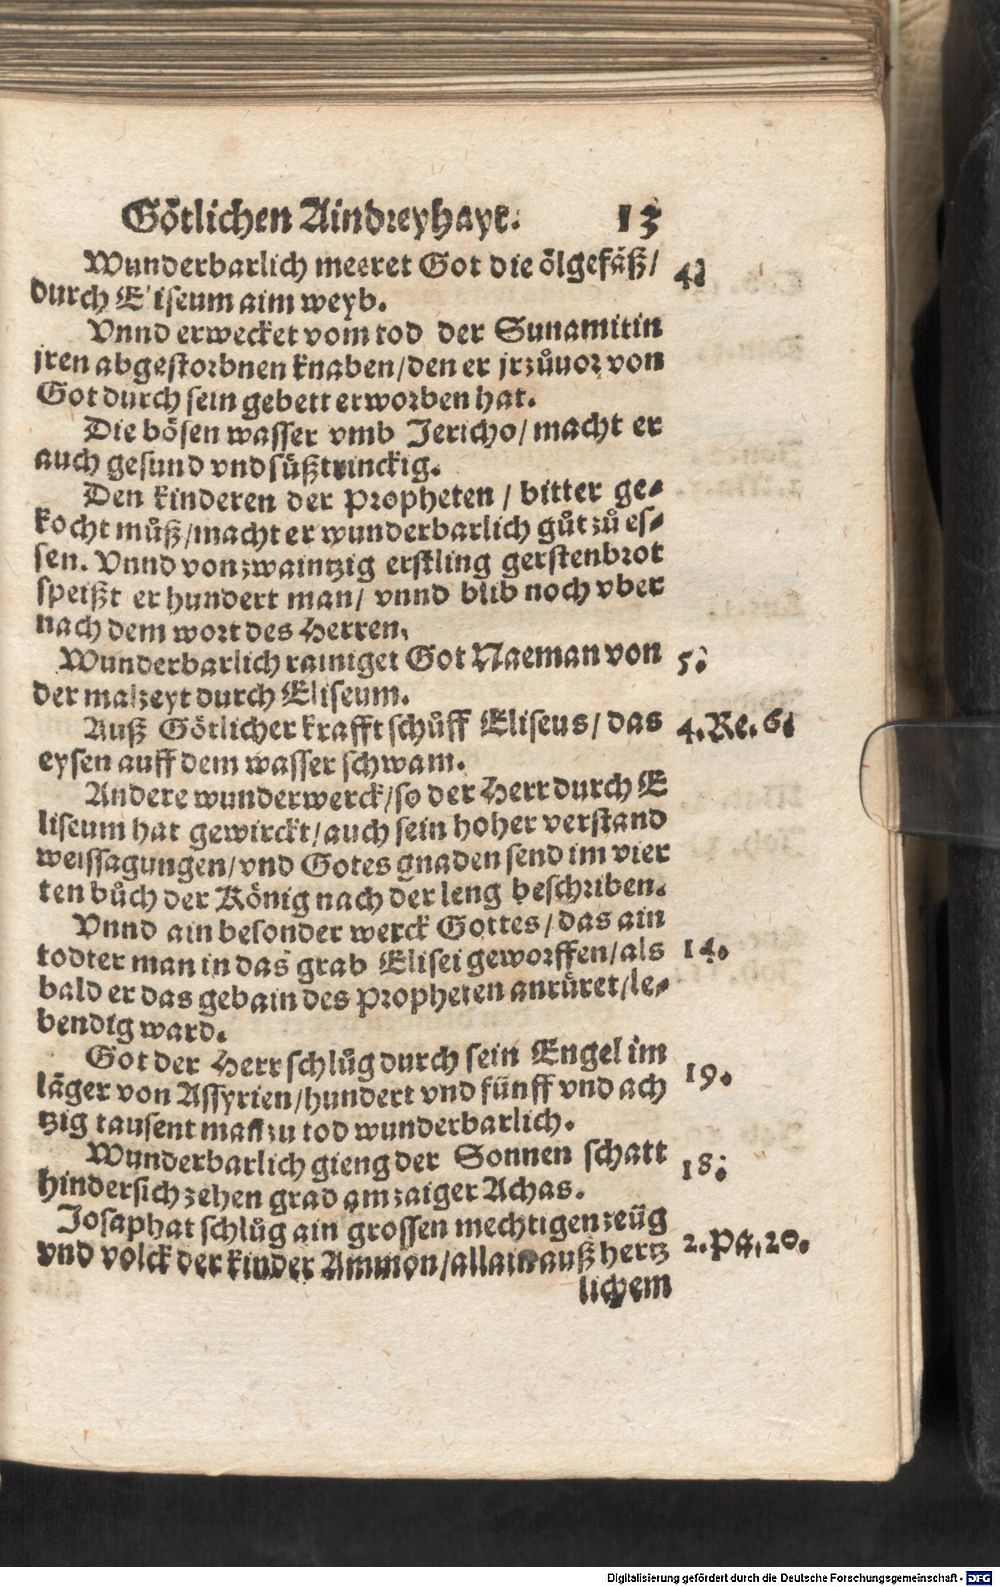 Götlichen Aindreyhayt. 13
Wunderbarlich meeret Got die ölgefäß/ 4.
durch Eliseum aim weyb.
Vnnd erwecket vom tod der Sunamitin
jren abgestorbnen knaben/den er jr zůuor von
Got durch sein gebett erworben hat.
Die bösen wasser vmb Jericho/ macht er
auch gesund vnd süßtrinckig.
Den kinderen der Propheten / bitter ge-
kocht můß/macht er wunderbarlich gůt zů es-
sen. Vnnd von zwaintzig erstling gerstenbrot
speißt er hundert man/ vnnd blib noch vber
nach dem wort des Herren.
Wunderbarlich rainiget Got Naeman von 5.
der malzeyt durch Eliseum.
Auß Götlicher krafft schůff Eliseus/ das 4.Re.6.
eysen auff dem wasser schwam.
Andere wunderwerck/so der Herr durch E
liseum hat gewirckt/auch sein hoher verstand
weissagungen/vnd Gotes gnaden send im vier
ten bůch der König nach der leng beschriben.
Vnnd ain besonder werck Gottes/das ain
todter man in das grab Elisei geworffen/als 14.
bald er das gebain des Propheten anrüret/le-
bendig ward.
Got der Herr schlůg durch sein Engel im
läger von Assyrien/hundert vnd fünff vnd ach 19.
tzig tausent mañ zu tod wunderbarlich.
Wunderbarlich gieng der Sonnen schatt 18.
hindersich zehen grad am zaiger Achas.
Josaphat schlůg ain grossen mechtigen zeüg
vnd volck der kinder Ammon/allain auß hertz 2.Pa.20.
lichem
Digitalisierung gefördert durch die Deutsche Forschungsgemeinschaft - DFG